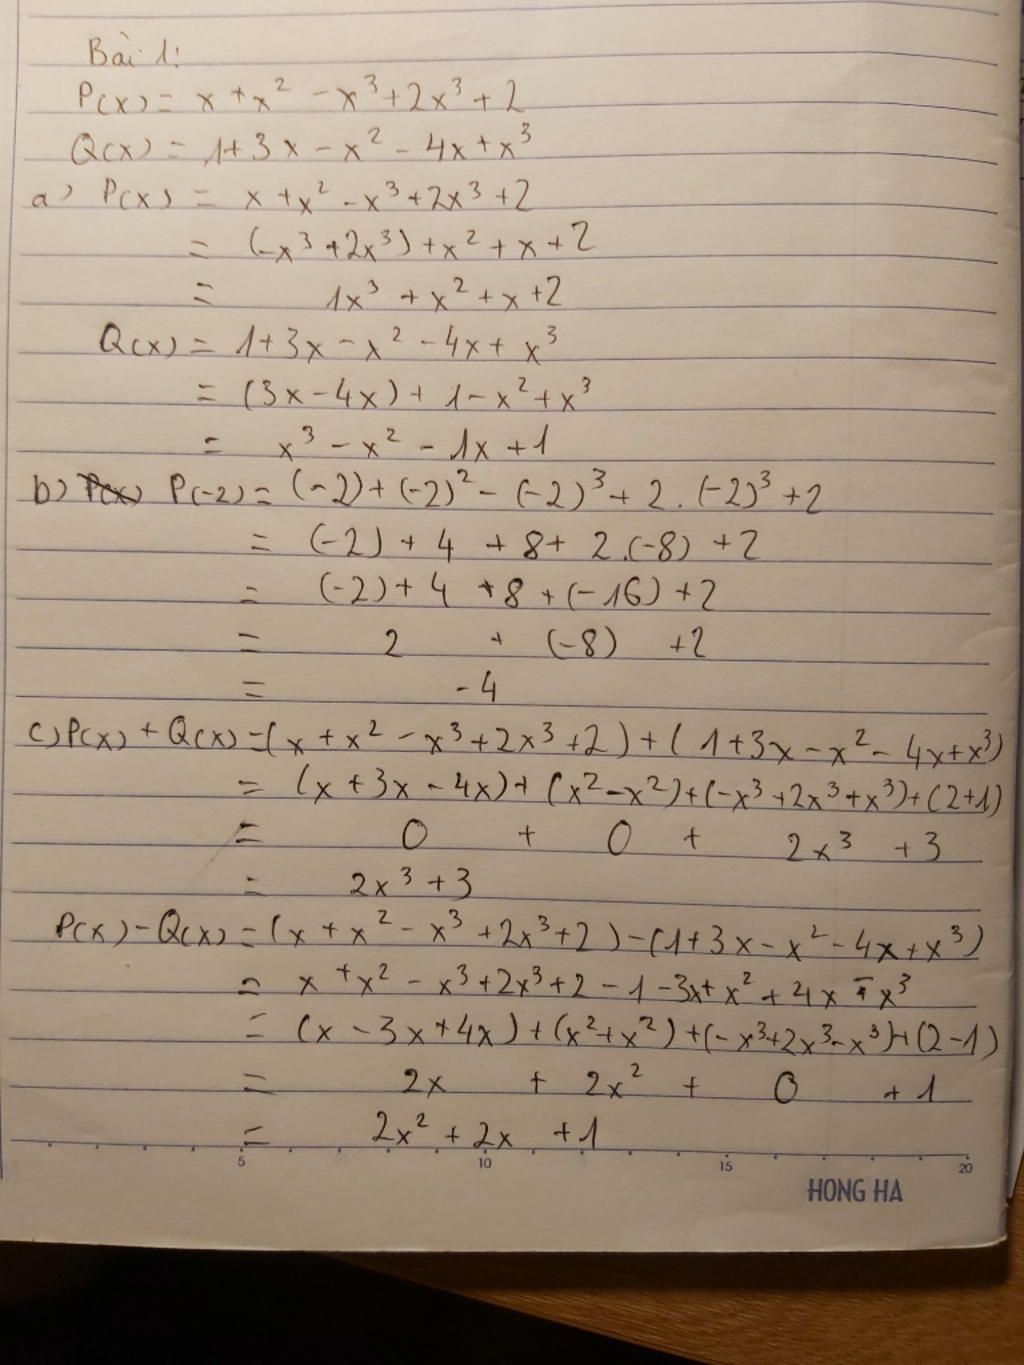 Bài 1:
P(x) = x + x² - x³ + 2x³ + 2
Q(x) = 1 + 3x - x² - 4x + x³
a) P(x) = x + x² - x³ + 2x³ + 2
= (-x³ + 2x³) + x² + x + 2
= 1x³ + x² + x + 2
Q(x) = 1 + 3x - x² - 4x + x³
= (3x - 4x) + 1 - x² + x³
= x³ - x² - 1x + 1
b) P(x) P(-2) = (-2) + (-2)² - (-2)³ + 2 . (-2)³ + 2
= (-2) + 4 + 8 + 2.(-8) + 2
= (-2) + 4 + 8 + (-16) + 2
= 2 + (-8) + 2
= -4
c) P(x) + Q(x) = (x + x² - x³ + 2x³ + 2) + (1 + 3x - x² - 4x + x³)
= (x + 3x - 4x) + (x² - x²) + (-x³ + 2x³ + x³) + (2 + 1)
= 0 + 0 + 2x³ + 3
= 2x³ + 3
P(x) - Q(x) = (x + x² - x³ + 2x³ + 2) - (1 + 3x - x² - 4x + x³)
= x + x² - x³ + 2x³ + 2 - 1 - 3x + x² + 4x - x³
= (x - 3x + 4x) + (x² + x²) + (-x³ + 2x³ - x³) + (2 - 1)
= 2x + 2x² + 0 + 1
= 2x² + 2x + 1
5 10 15 20
HONG HA